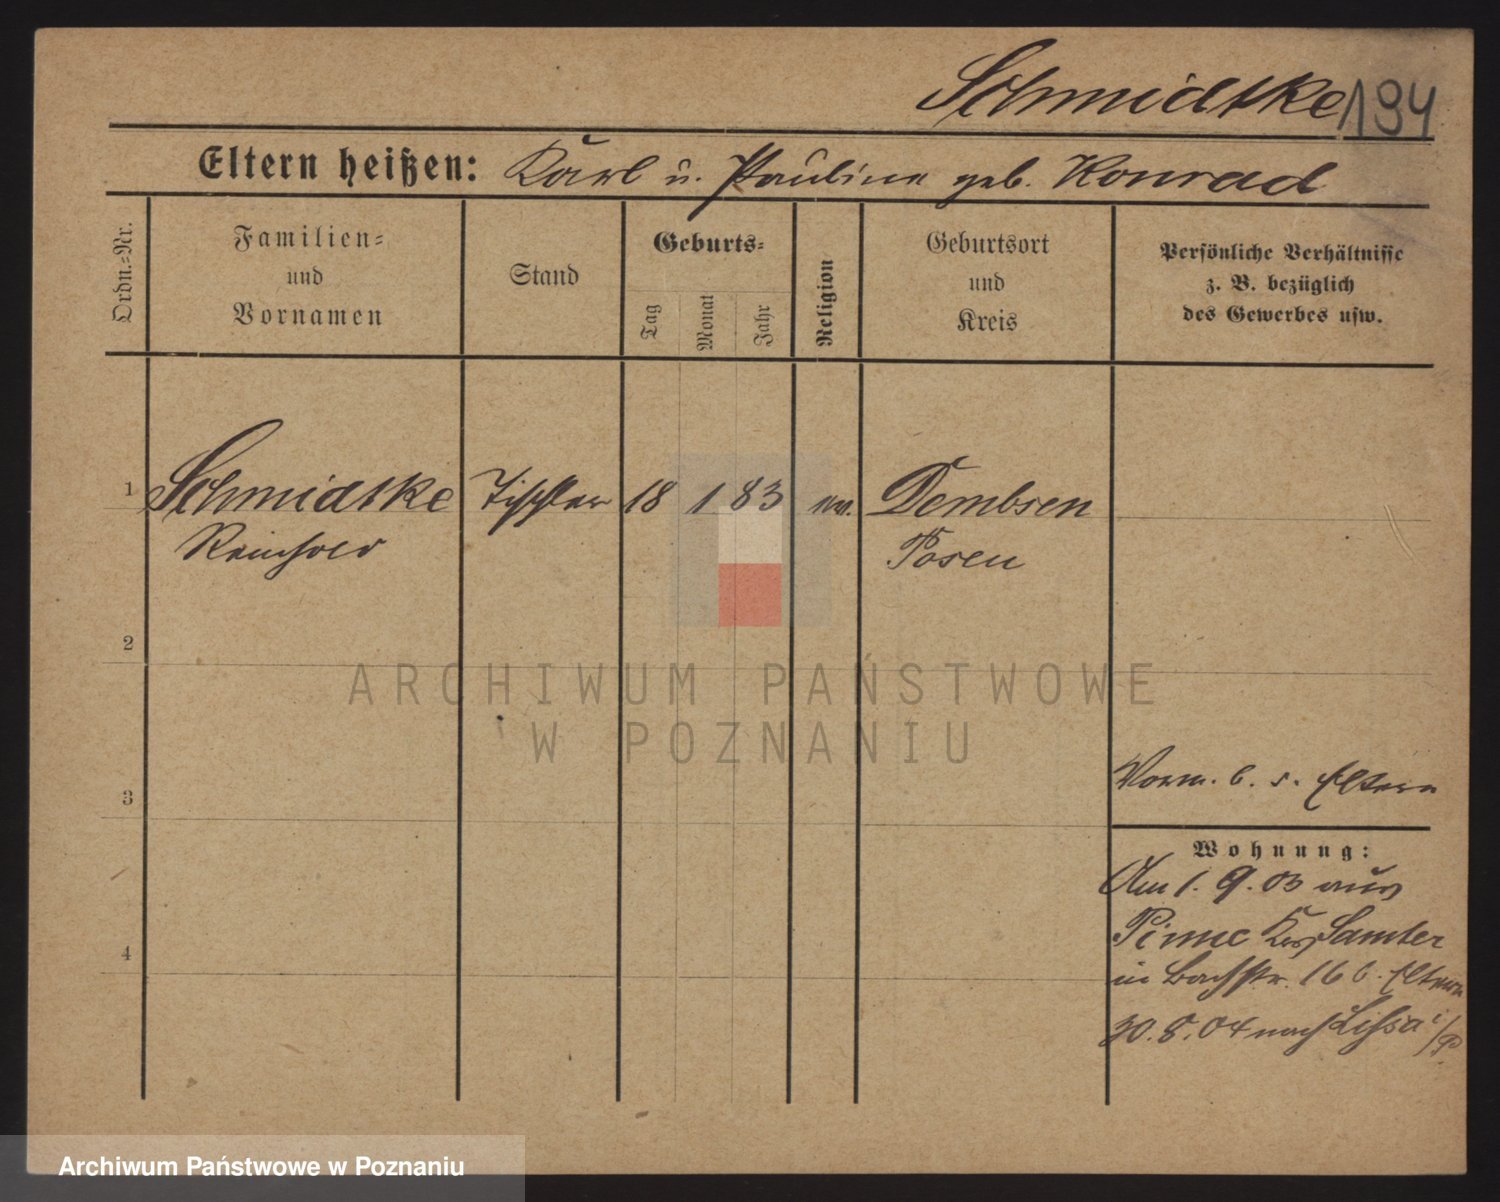 Schmidtke 194
Eltern heißen: Karl u. Pauline geb. Konrad
Ordn.=Nr.
Familien=
und
Vornamen
Stand
Geburts=
Tag
Monat
Jahr
Religion
Geburtsort
und
Kreis
Persönliche Verhältnisse
z. B. bezüglich
des Gewerbes usw.
1 Schmidtke Tischler 18 1 83 ev. Dembsen
Reinhold Posen
2
3
4
Vorm. b. s. Eltern
Wohnung:
Am 1. 9. 03 aus
Pinne Krs Samter
in Bachstr. 16 b. Eltern
30. 8. 04 nach Lissa i/P.
ARCHIWUM PAŃSTWOWE
W POZNANIU
Archiwum Państwowe w Poznaniu